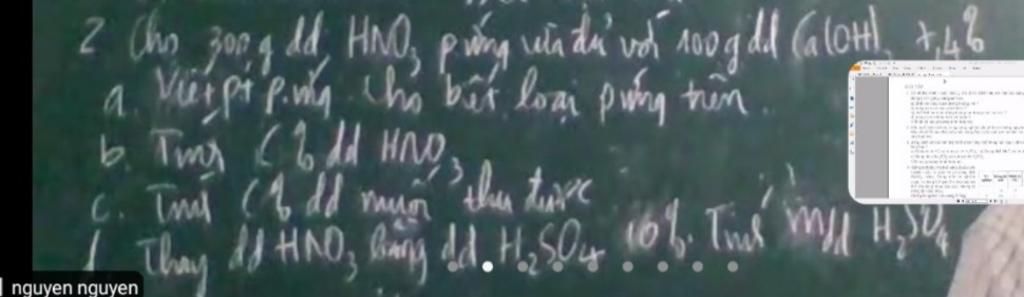 2 Cho 300g dd HNO3 pứng vừa đủ với 100g dd Ca(OH)2 7,4%
a. Viết pt p.ứng. Cho biết loại pứng trên.
b. Tính C% dd HNO3
c. Tính C% dd muối thu được
d Thay dd HNO3 bằng dd H2SO4 10%. Tính mdd H2SO4
nguyen nguyen